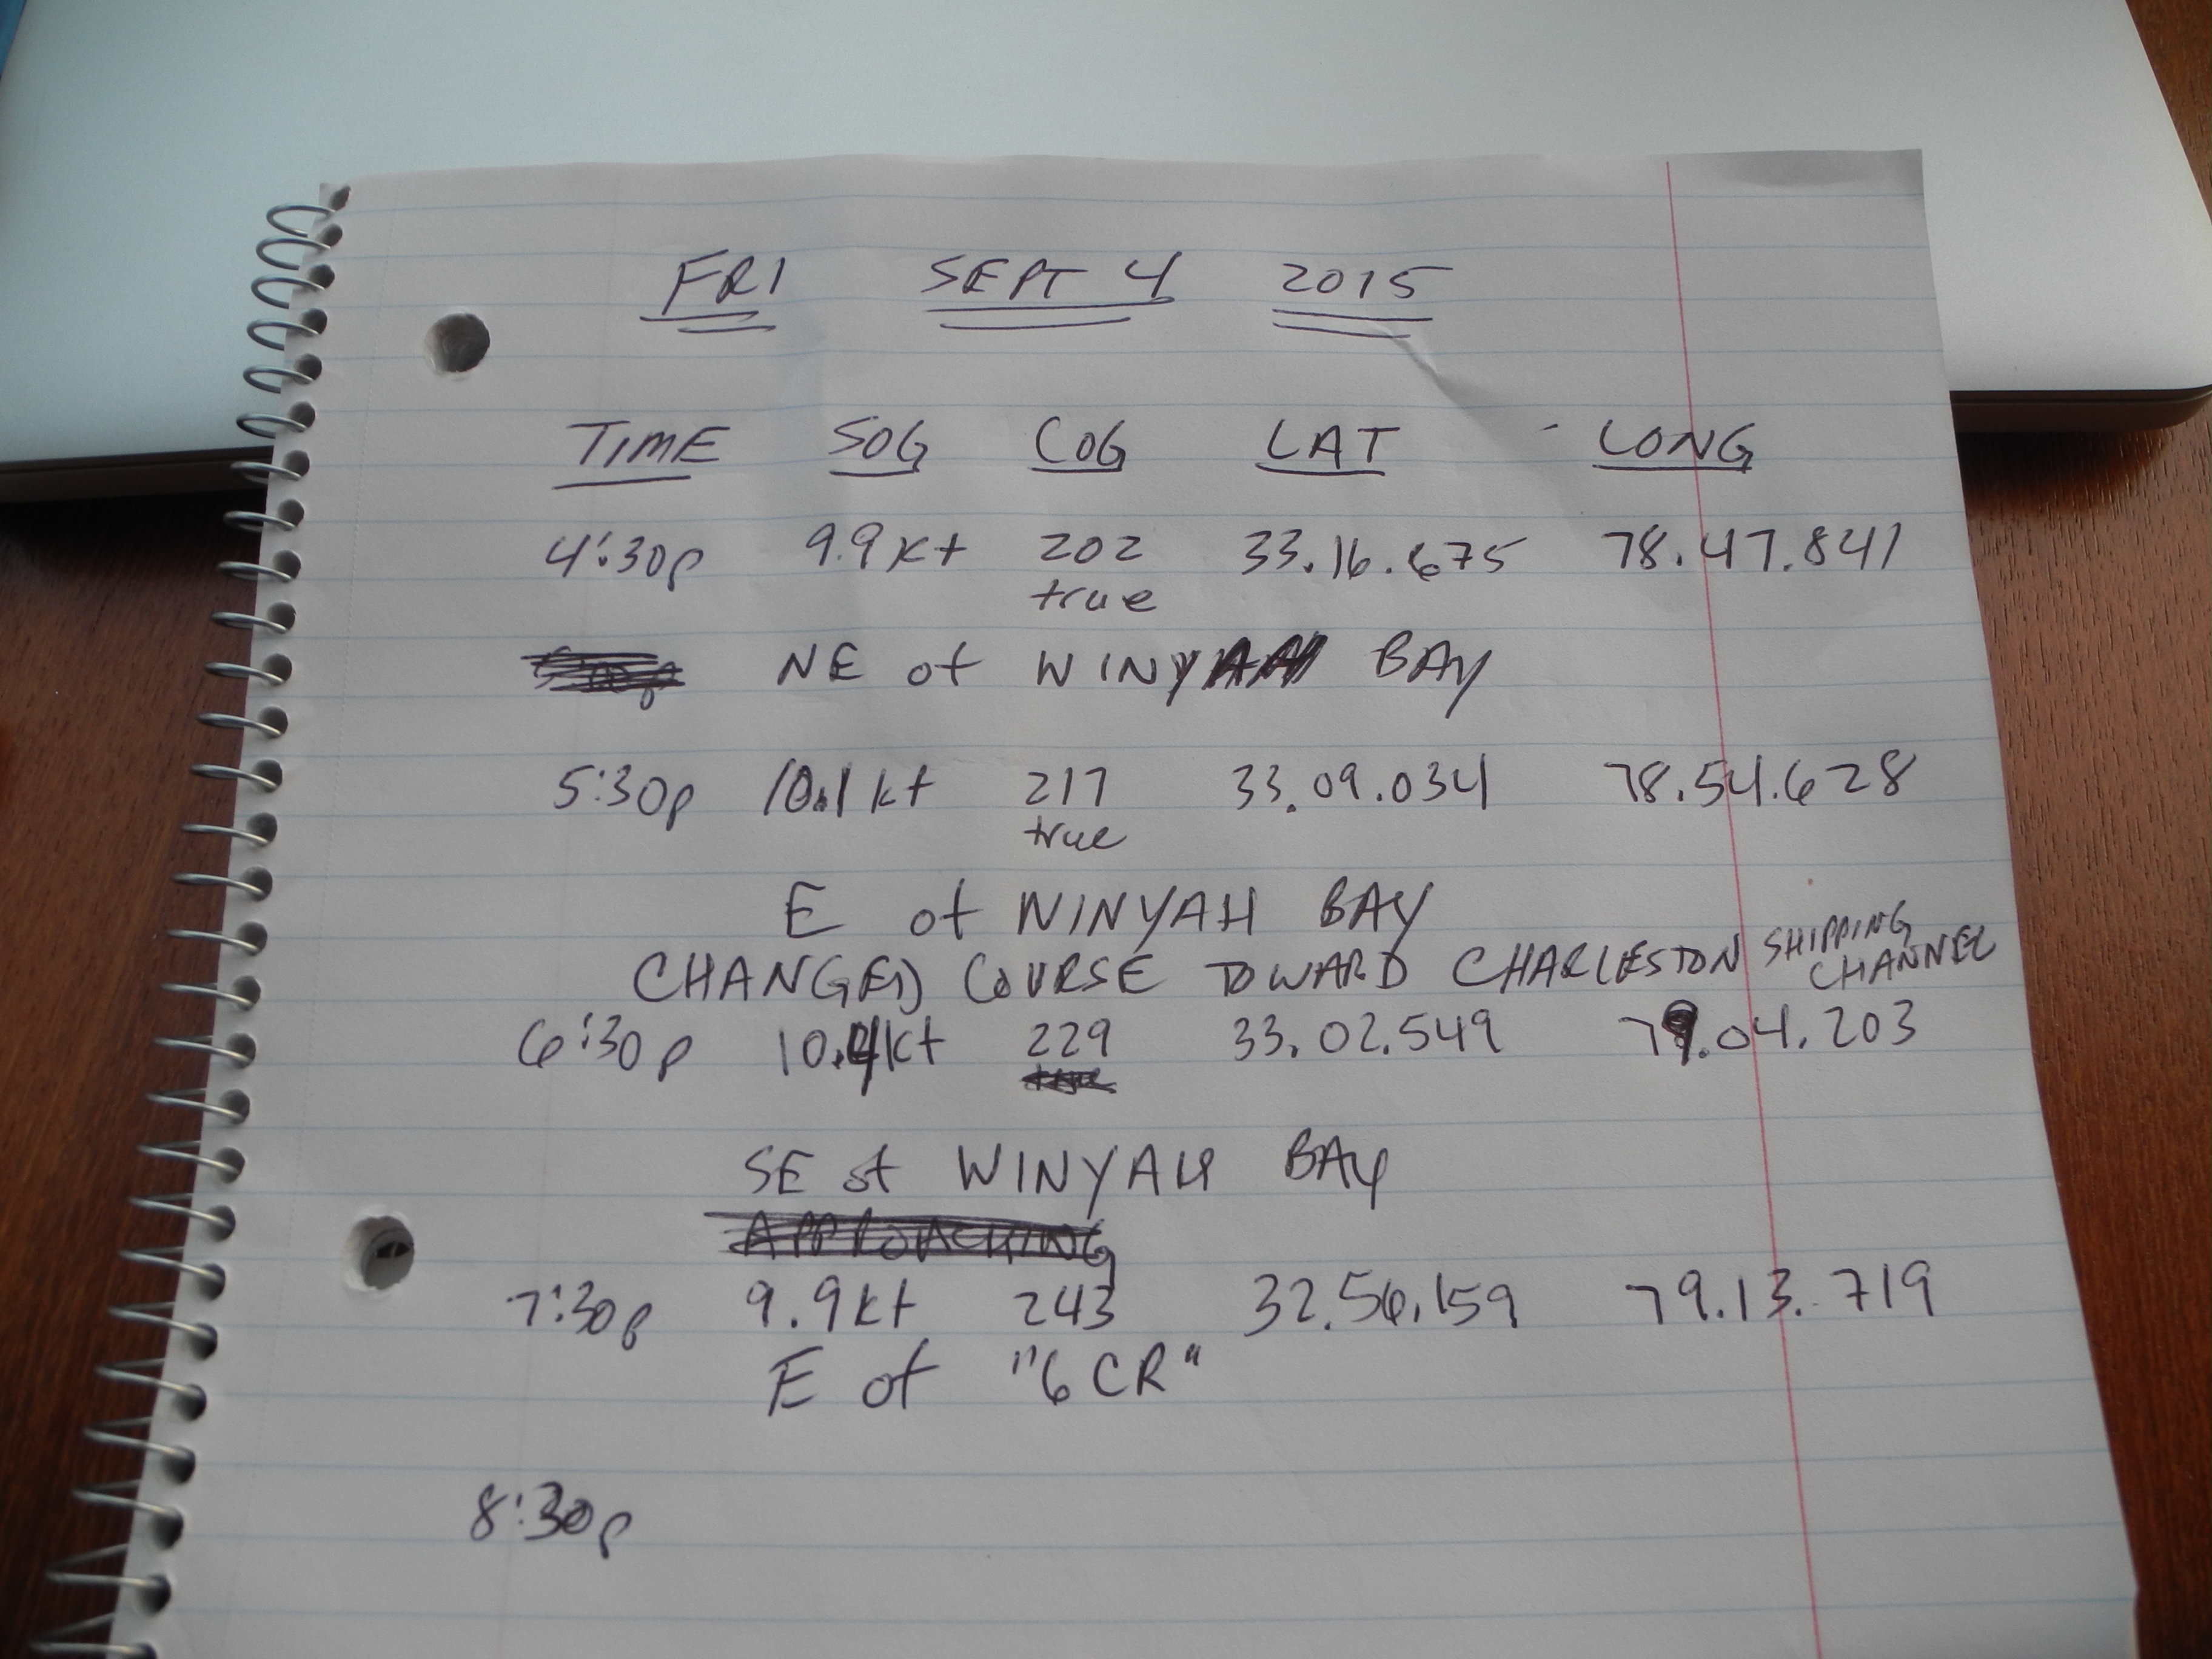 FRI SEPT 4 2015
TIME SOG COG LAT - LONG
4:30p 9.9 kt 202 33.16.675 78.47.841
true
NE of WINYAH BAY
5:30p 10.1 kt 217 33.09.034 78.54.628
true
E of WINYAH BAY
CHANGED COURSE TOWARD CHARLESTON SHIPPING CHANNEL
6:30p 10.4 kt 229 33.02.549 79.04.203
SE of WINYAH BAY
APPROACHING
7:30p 9.9 kt 243 32.56.159 79.13.719
E of "6CR"
8:30p